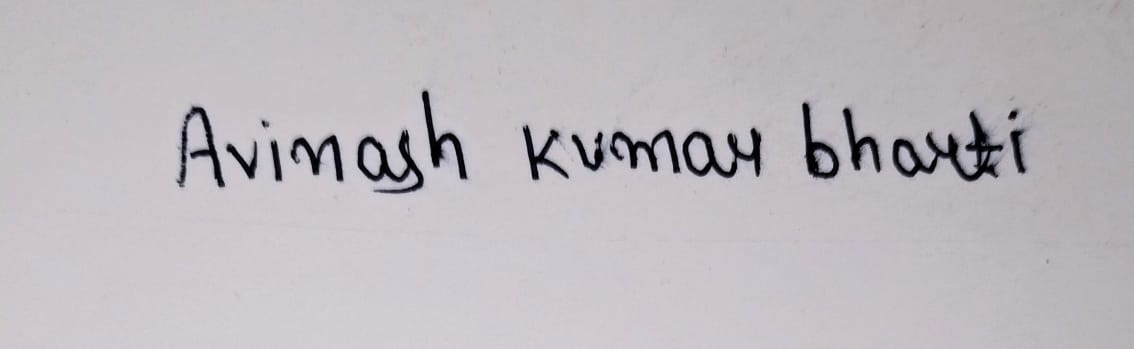 Avinash kumar bharti